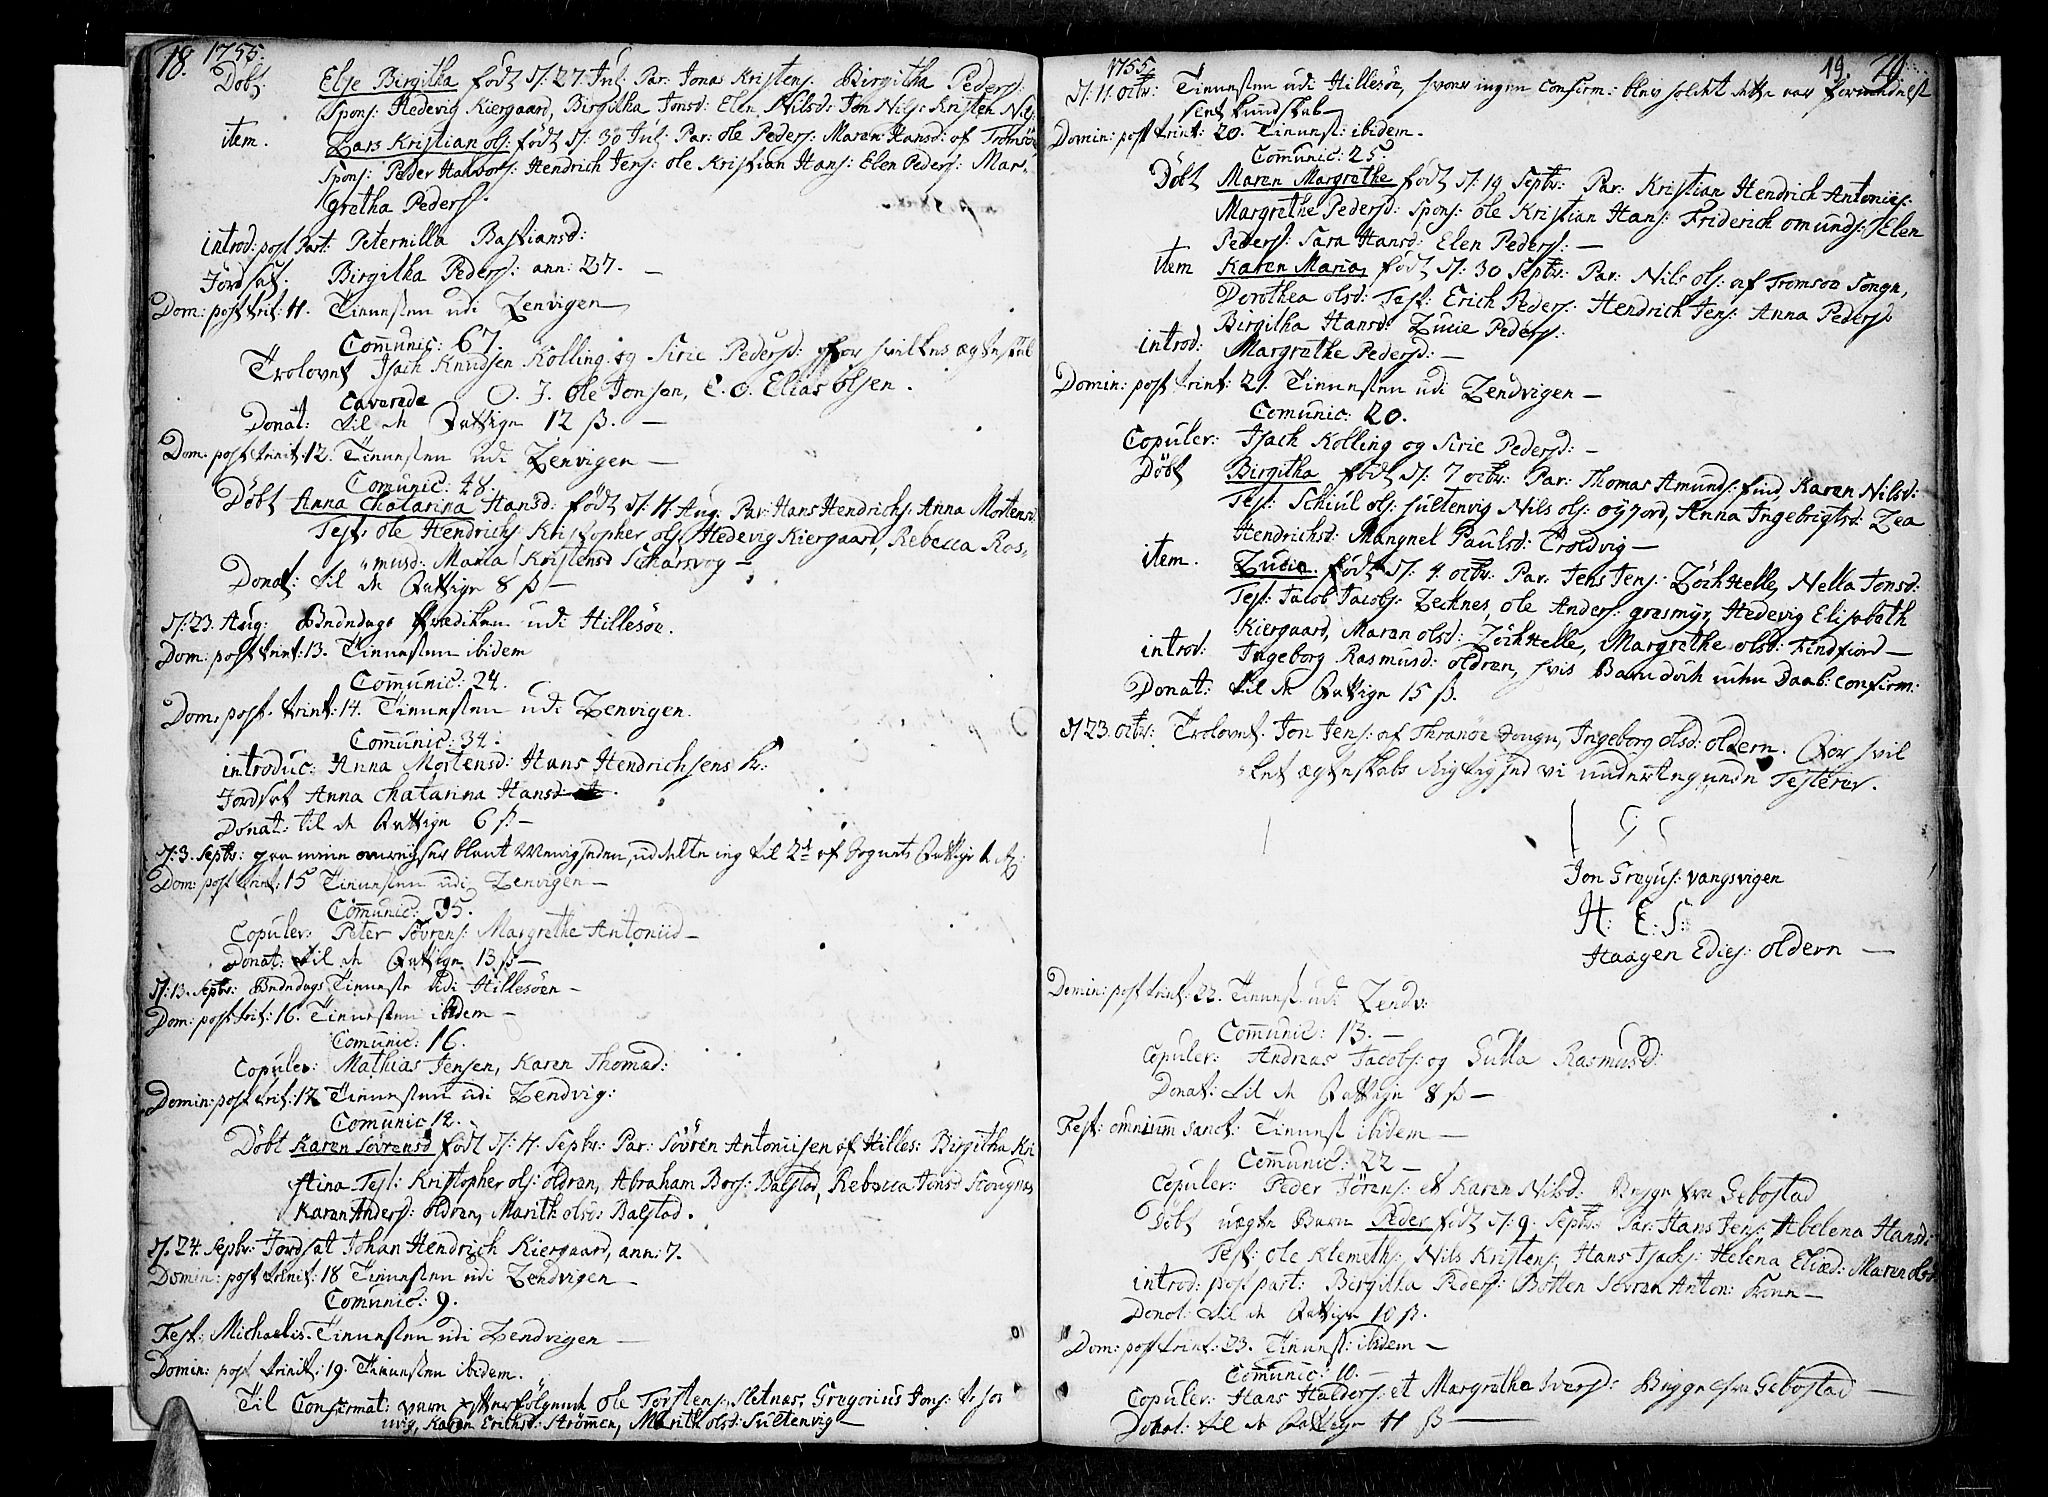 18. 1755.
Döbt. Else Birgitha født d: 27 Jul: Par: Jonas Kristens: Birgitha Peders:
Spons: Hedevig Kiergaard, Birgitha Jonsd: Elen Nilsd: Jon Nils: Kristen Nils:
item. Lars Kristian ols: født d: 30 Jul: Par: ole Peders: Maren Hansd: af Tromsöe
Spons: Peder Halvors: Hendrich Jens: ole Kristian Hans: Elen Peders: Mar-
gretha Peders.
introd: post Part: Peternilla Bastiansd:
Jordsat. Birgitha Peders: ann: 27. —
Dom: post trit: 11. Tienesten udi Lenvigen
Comunic: 67.
Trolovet Isach Knudsen Kolling og Siric Pedersd: for hvilkes ægteskab
Caverede O. J. ole Jonsen, E. O. Elias olsen.
Donat: til de Fattige 12 ß. —
Dom: post trinit: 12. Tienesten udi Lenvigen —
Comunic: 48.
Döbt Anna Chatarina Hansd: født d: 11 Aug: Par: Hans Hendrichs: Anna Mortensd:
Test: ole Hendrichs: Kristopher ols: Hedevig Kiergaard, Rebecca Ras-
musd: Maria Kristensd Schårsvog —
Donat: til de Fattige 8 ß —
d: 23. Aug: Bededags Prædiken udi Hillesöe.
Dom: post trinit: 13. Tienesten ibidem
Comunic: 24.
Dom: post. trinit: 14. Tienesten udi Lenvigen.
Comunic: 34.
introduc: Anna Mortensd: Hans Hendrichsens K:
Jordsat Anna Chatarina Hansd:
Donat: til de Fattige 6 ß —
d: 3. Septbr: uddelte ieg til 2de af Sognets Fattige 1
Dom: post trinit: 15 Tienesten udi Lenvigen —
Comunic: 35.
Copuler: Peter Sövrens: Margrethe Antoniid —
Donat: til de Fattige 13 ß —
d: 13. Septbr: Bededags Tieneste udi Hillesöen —
Dom: post trit: 16. Tienesten ibidem —
Comunic: 16.
Copuler: Mathias Jensen, Karen Thomæd:
Domin: post trit: 17 Tienesten udi Lendvig:
Comunic 12.
Döbt Karen Sövrensd født d: 4. Septbr: Par: Sövren Antoniisen af Hilles: Birgitha Kri
stina Test: Kristopher ols: oldran, Abraham Bors: Balstad, Rebecca Jonsd
Karen Anders: oldren, Marith olsd: Balstad.
d. 24. Septbr: Jordsat Johan Hendrich Kiergaard, ann: 7.
Domin: post trinit: 18 Tienesten udi Lendvigen —
Comunic: 9.
Fest: Michaelis. Tienesten udi Lendvigen —
Domin: post trinit: 19. Tienesten ibidem.
Til Confirmat: vare efterfölgende ole Torstens: Sletnæs, Gregorius Jons:
vig, Karen Erichsd: Strömmen, Marith olsd: Sultenvig
1755. 19. 20.
d: 11. octbr: Tienesten udi Hillesöe, hvor ingen Confirm: blev holdt dette aar formedelst
sent kundskab
Domin: post trinit: 20. Tienest: ibidem.
Comunic: 25.
Döbt Maren Margrethe født d: 19 Septbr: Par: Kristian Hendrich Antoniis:
Margrethe Pedersd: Spons: ole Kristian Hans: Friderich omunds: Elen
Peders: Sara Hansd: Elen Peders: —
item Karen Maria, født d: 30 Septbr: Par: Nils ols: af Tromsöe Sogn,
Dorothea olsd: Test: Erich Peders: Hendrich Jens: Anna Peders:
Birgitha Hansd: Lucie Peders:
introd: Margrethe Pedersd: —
Domin: post trinit: 21. Tienesten udi Lendvigen —
Comunic: 20.
Copuler: Isach Kolling og Siric Pedersd: —
Döbt Birgitha født d: 7 octbr: Par: Thomas Amunds: find, Karen Nilsd:
Test: Schiul ols: sultenvig Nils ols: öyjord, Anna Ingebrigtsd: Lea
Hendrichsd: Mangnel Paulsd: Troldvig —
item. Lucia født d: 4. octbr: Par: Jens Jens: Löchhelle, Nella Jonsd:
Test: Jacob Jacobs: Lecknes, ole Anders: grasmyr, Hedevig Elisabath
Kiergaard, Maran olsd: Löchhelle, Margrethe olsd: Findfiord —
introd: Ingeborg Rasmusd: oldran, hvis Barn doch uden Daab: confirm:
Donat: til de Fattige 15 ß.
d 23. octbr: Trolovet. Jon Jens: af Thranöe Sougn, Ingeborg olsd: oldern. For hvil
ket ægteskabs Rigtighed vi underteignede Testerer.
Jon Greyus: vangsvigen
H: E: S:
Haagen Edies: oldern —
Domin: post trinit: 22. Tienest: udi Lendv:
Comunic: 13. —
Copuler: Andreas Jacobs: og Gulla Rasmusd:
Donat: til de Fattige 8 ß —
Fest: omnium sanct: Tienest ibidem —
Comunic: 22 —
Copuler: Peder Jörens: et Karen Nilsd: Begge fra Gebostad
Döbt uægte Barn Peder født d: 9. Septbr: Par: Hans Jens: Abelena Hansd:
Test: ole Klemeths: Nils Kristens: Hans Isachs: Helena Eliæd: Maren olsd
introd: post part: Birgitha Peders: Botten Sövren Anton: Kone —
Donat: til de Fattige 10 ß.
Dom: post trinit: 23. Tienest: ibidem —
Comunic: 10. —
Copuler: Hans Halders: et Margretha Ivarsd: Begge fra Gebostad —
Donat: til de Fattige 11 ß —